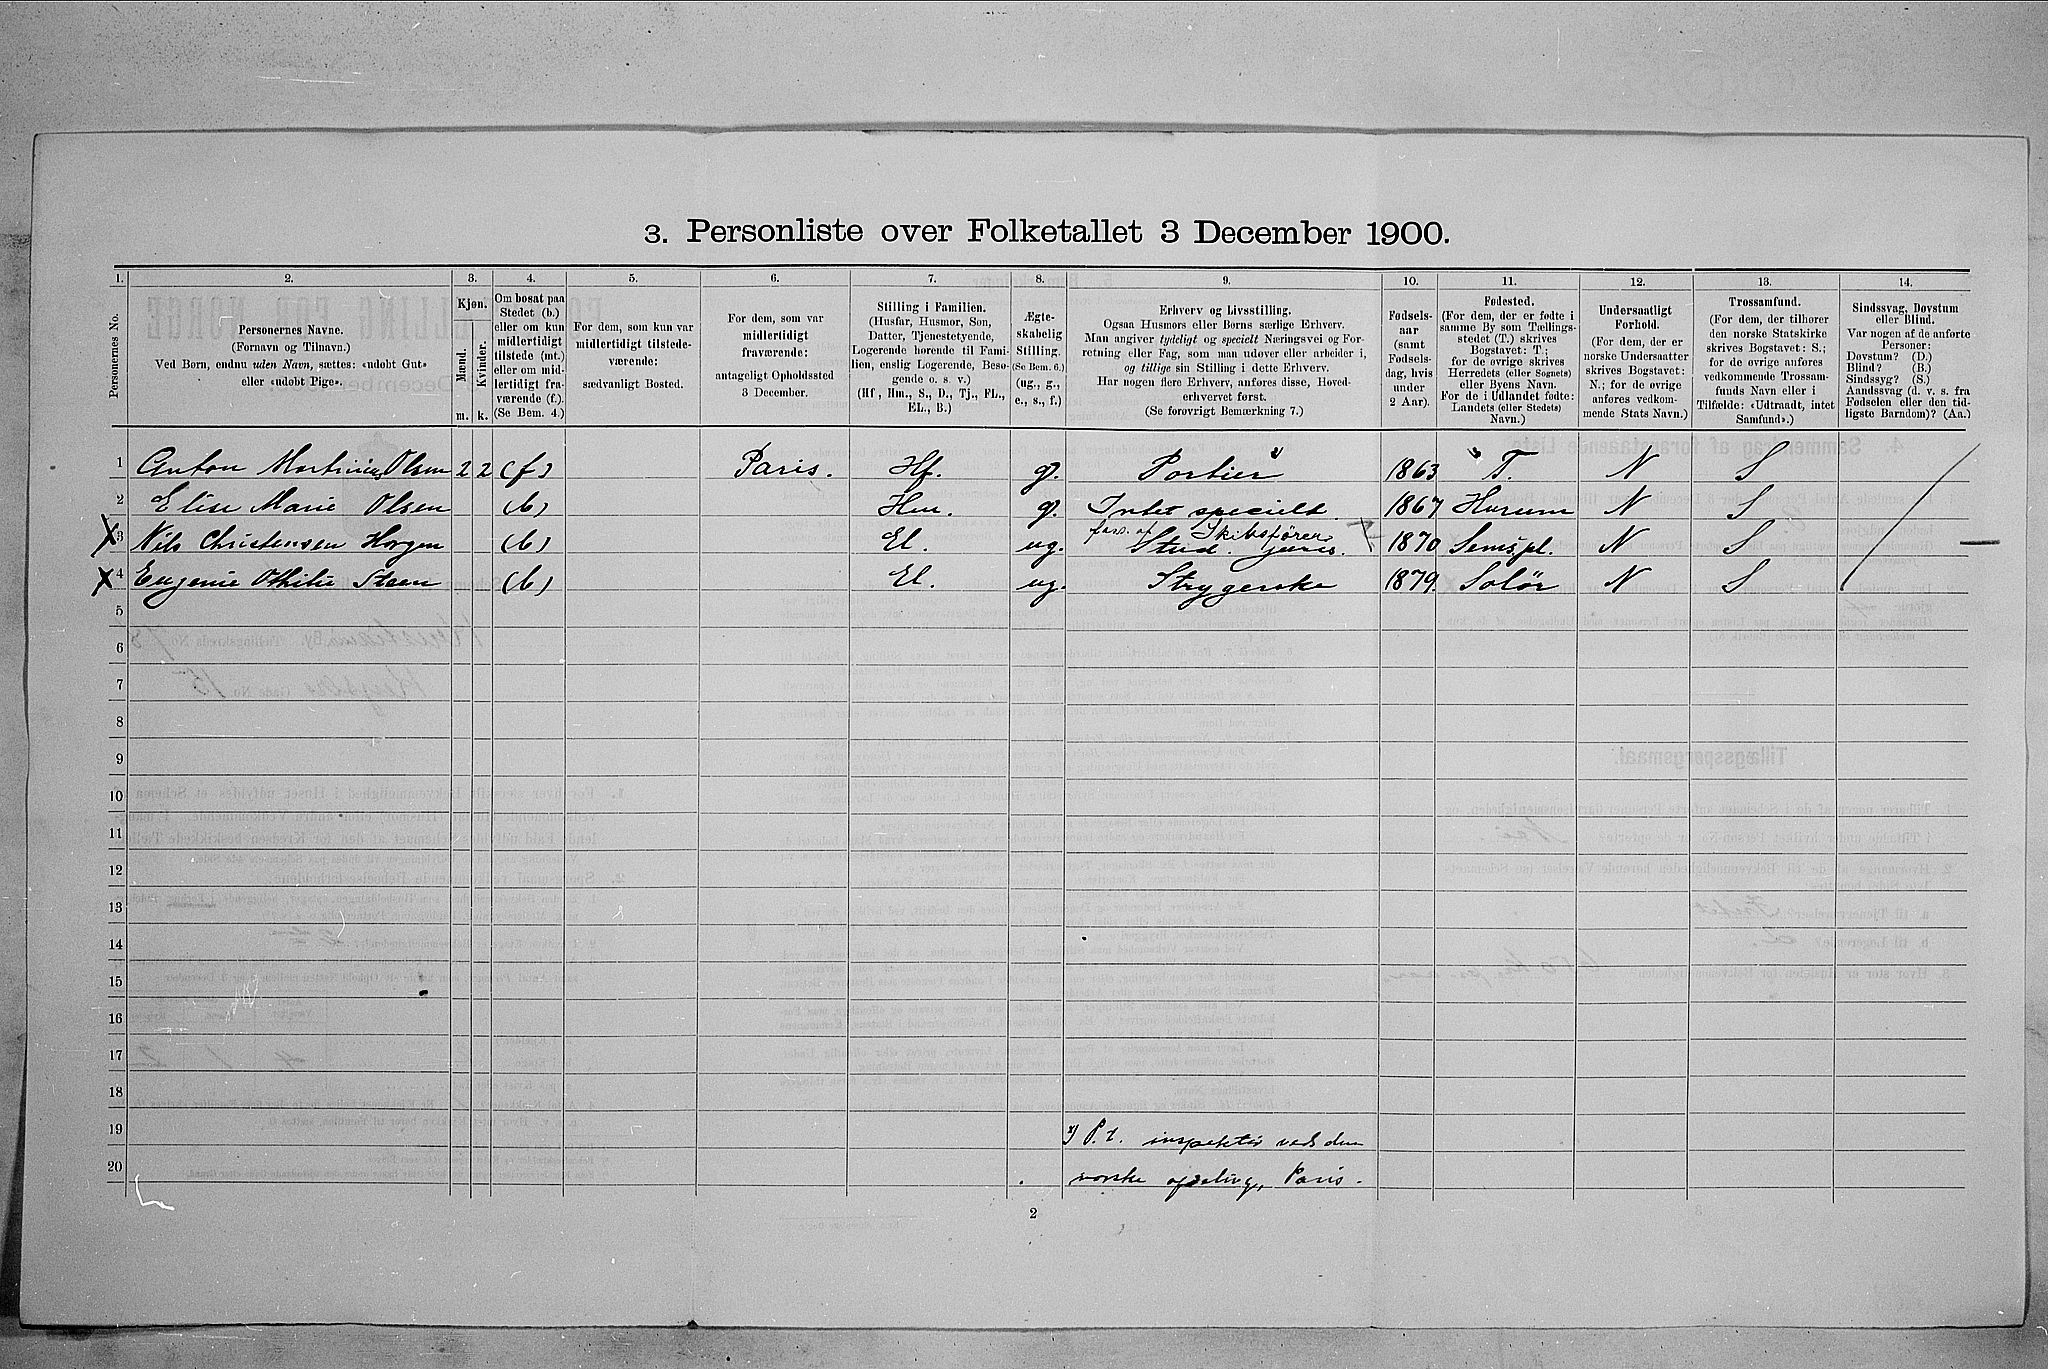 3. Personliste over Folketallet 3 December 1900.
1. 2. 3. 4. 5. 6. 7. 8. 9. 10. 11. 12. 13. 14.
Personernes No.
Personernes Navne.
(Fornavn og Tilnavn.)
Ved Børn, endnu uden Navn, sættes: «udøbt Gut»
eller «udøbt Pige».
Kjøn.
Mænd.
Kvinder.
m. k.
Om bosat paa
Stedet (b.)
eller om kun
midlertidigt
tilstede (mt.)
eller om mid-
lertidigt fra-
værende (f.).
(Se Bem. 4.)
For dem, som kun var
midlertidigt tilstede-
værende:
sædvanligt Bosted.
For dem, som var
midlertidigt
fraværende:
antageligt Opholdssted
3 December.
Stilling i Familien.
(Husfar, Husmor, Søn,
Datter, Tjenestetyende,
Logerende hørende til Fami-
lien, enslig Logerende, Besø-
gende o. s. v.)
(Hf., Hm., S., D., Tj., FL.,
EL., B.)
Ægte-
skabelig
Stilling.
(Se Bem. 6.)
(ug., g.,
e., s., f.)
Erhverv og Livsstilling.
Ogsaa Husmors eller Børns særlige Erhverv.
Man angiver tydeligt og specielt Næringsvei og For-
retning eller Fag, som man udøver eller arbeider i,
og tillige sin Stilling i dette Erhverv.
Har nogen flere Erhverv, anføres disse, Hoved-
erhvervet først.
(Se forøvrigt Bemærkning 7.)
Fødsels-
aar
(samt
Fødsels-
dag, hvis
under
2 Aar).
Fødested.
(For dem, der er fødte i
samme By som Tællings-
stedet (T.) skrives
Bogstavet: T.;
for de øvrige skrives
Herredets (eller Sognets)
eller Byens Navn.
For de i Udlandet fødte:
Landets (eller Stedets)
Navn.)
Undersaatligt
Forhold.
(For dem, der er
norske Undersaatter
skrives Bogstavet:
N.; for de øvrige
anføres vedkom-
mende Stats Navn.)
Trossamfund.
(For dem, der tilhører
den norske Statskirke
skrives Bogstavet: S.;
for de øvrige anføres
vedkommende Trossam-
funds Navn eller i
Tilfælde: «Udtraadt, intet
Samfund».)
Sindssvag, Døvstum
eller Blind.
Var nogen af de anførte
Personer:
Døvstum? (D.)
Blind? (B.)
Sindssyg? (S.)
Aandssvag (d. v. s. fra
Fødselen eller den tid-
ligste Barndom)? (Aa.)
1 Anton Martinius Olsen 2 2 (f) Paris. Hf. g. Portier 1863 T. N S
2 Elise Marie Olsen (b) Hm. g. Intet specielt. 1867 Hurum N S
fors. af Skibsfører
3 Nils Christensen Horgen (b) El. ug. Stud. juris. 1870 Semspl. N S
4 Eugenie Othilie Steen (b) El. ug. Strygerske 1879. Solør N S
5
6
7
8
9
10
11
12
13
14
15
16
17
18
19 P.t. inspektør ved den
20 norske afdeling, Paris.
2